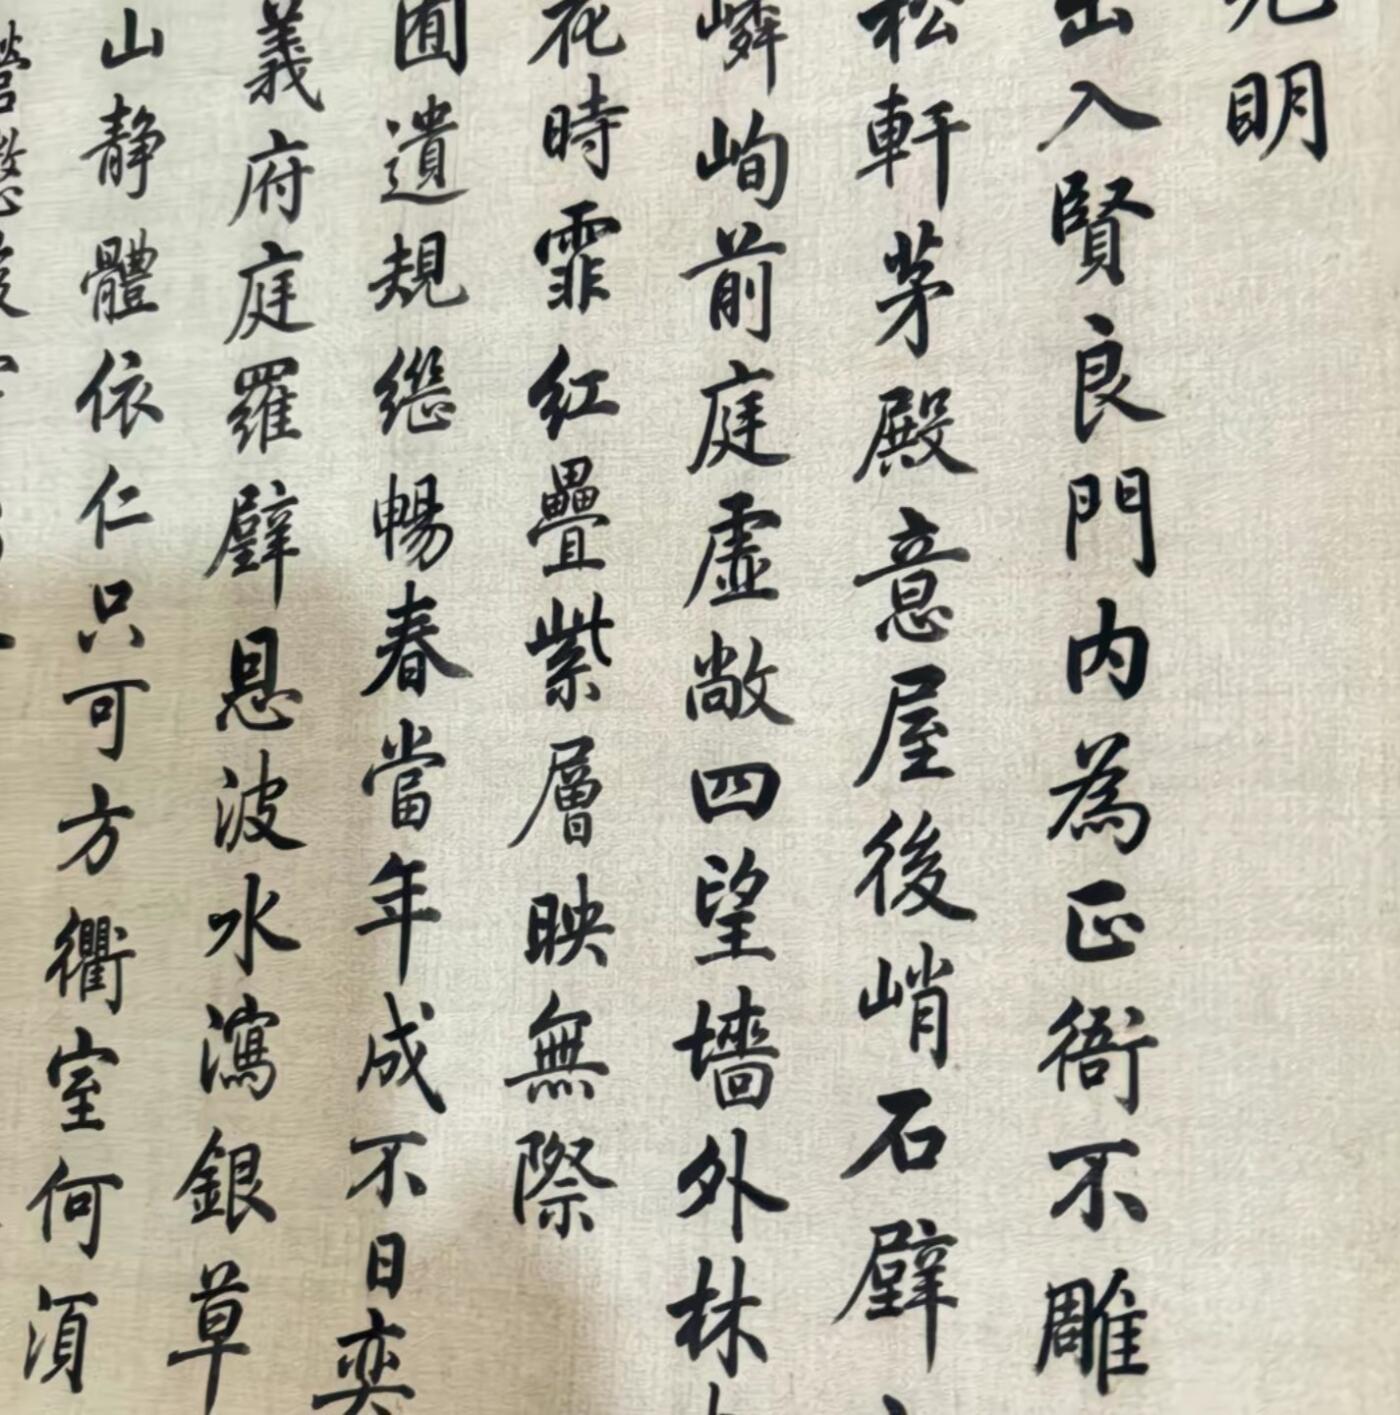 光明
出入賢良門內為正衙不雕
松軒茅殿意屋後峭石壁
嶙峋前庭虛敞四望墻外林
花時霏紅疊紫層映無際
園遺規繼暢春當年成不日奕
義府庭羅壁恳波水瀉銀草
山靜體依仁只可方衢室何須